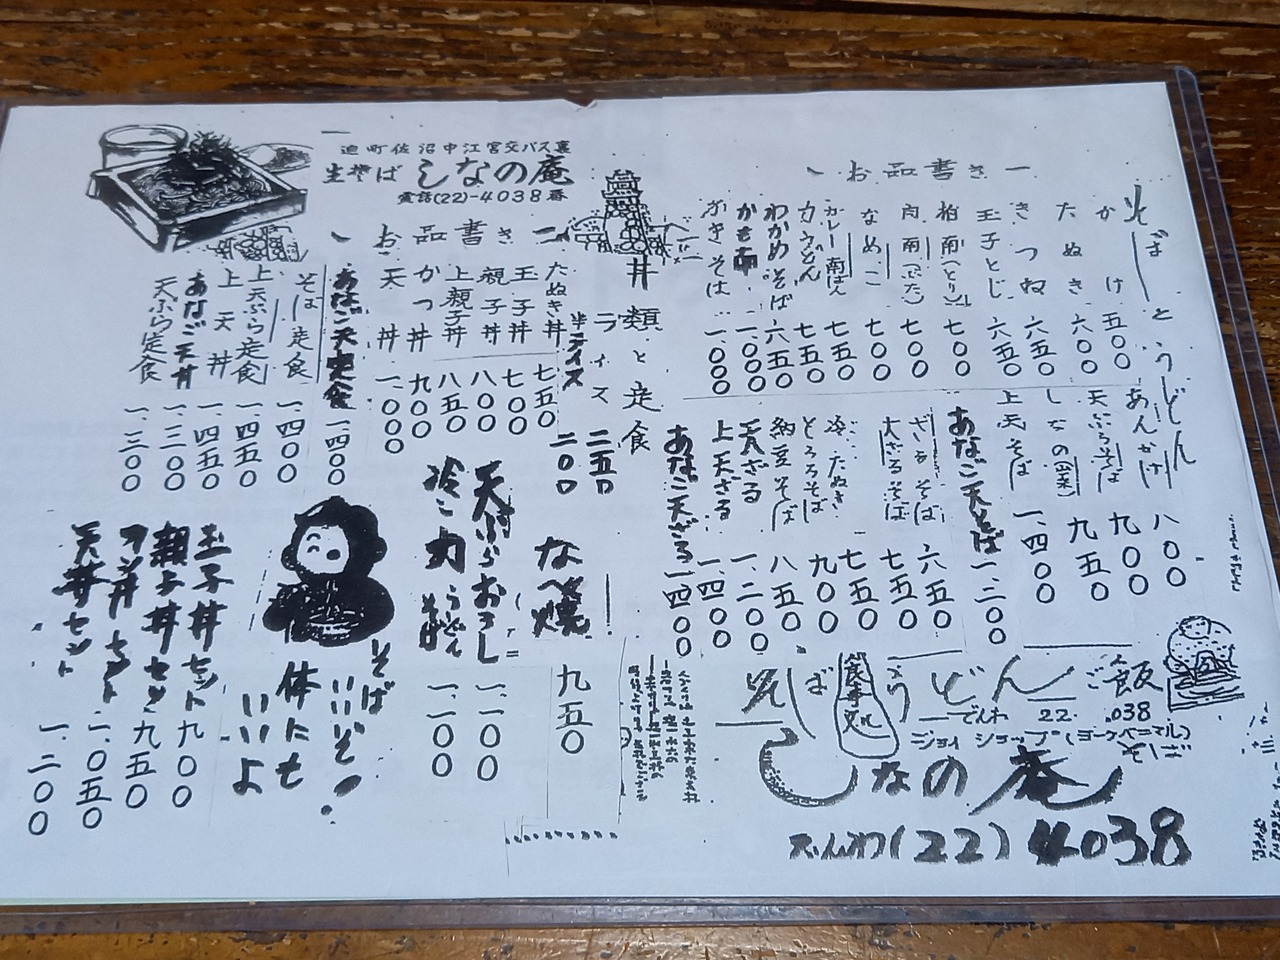 お品書き
そばとうどん
かけ 五〇〇
たぬき 六〇〇
きつね 六五〇
玉子とじ 六五〇
柏南(とり) 七〇〇
肉南(ぶた) 七〇〇
なめこ 七〇〇
カレー南ばん 七五〇
力うどん 七五〇
わかめそば 六五〇
かき南 一、〇〇〇
かきそば 一、〇〇〇
あんかけ 八〇〇
天ぷらそば 九〇〇
しなの(山菜) 九五〇
上天そば 一、四〇〇
あなご天そば 一、二〇〇
ざるそば 六五〇
大ざるそば 七五〇
冷したぬき 七五〇
とろろそば 九〇〇
納豆そば 八五〇
天ざる 一、二〇〇
上天ざる 一、四〇〇
あなご天ざる 一、四〇〇
そば
食事文化
うどん
ご飯
でんわ 22 038
ジョイ ショップ(ヨークベニマル)
そば
しなの庵
でんわ(22)4038
迫町佐沼中江宮交バス裏
生そば しなの庵
電話(22)-4038番
お品書き
丼類と定食
ライス 二五〇
半ライス 二〇〇
たぬき丼 七五〇
玉子丼 七〇〇
親子丼 八〇〇
上親子丼 八五〇
かつ丼 九〇〇
天丼 一、〇〇〇
あなご天定食 一、四〇〇
そば定食 一、四〇〇
上天ぷら定食 一、四五〇
上天丼 一、四五〇
あなご天丼 一、三〇〇
天ぷら定食 一、二〇〇
なべ焼 九五〇
天ぷらおろし 一、一〇〇
冷し力うどん そば 一、一〇〇
そばいいぞ!
体にも
いいよ
玉子丼セット 九〇〇
親子丼セット 九五〇
カツ丼セット 一、〇五〇
天丼セット 一、二〇〇